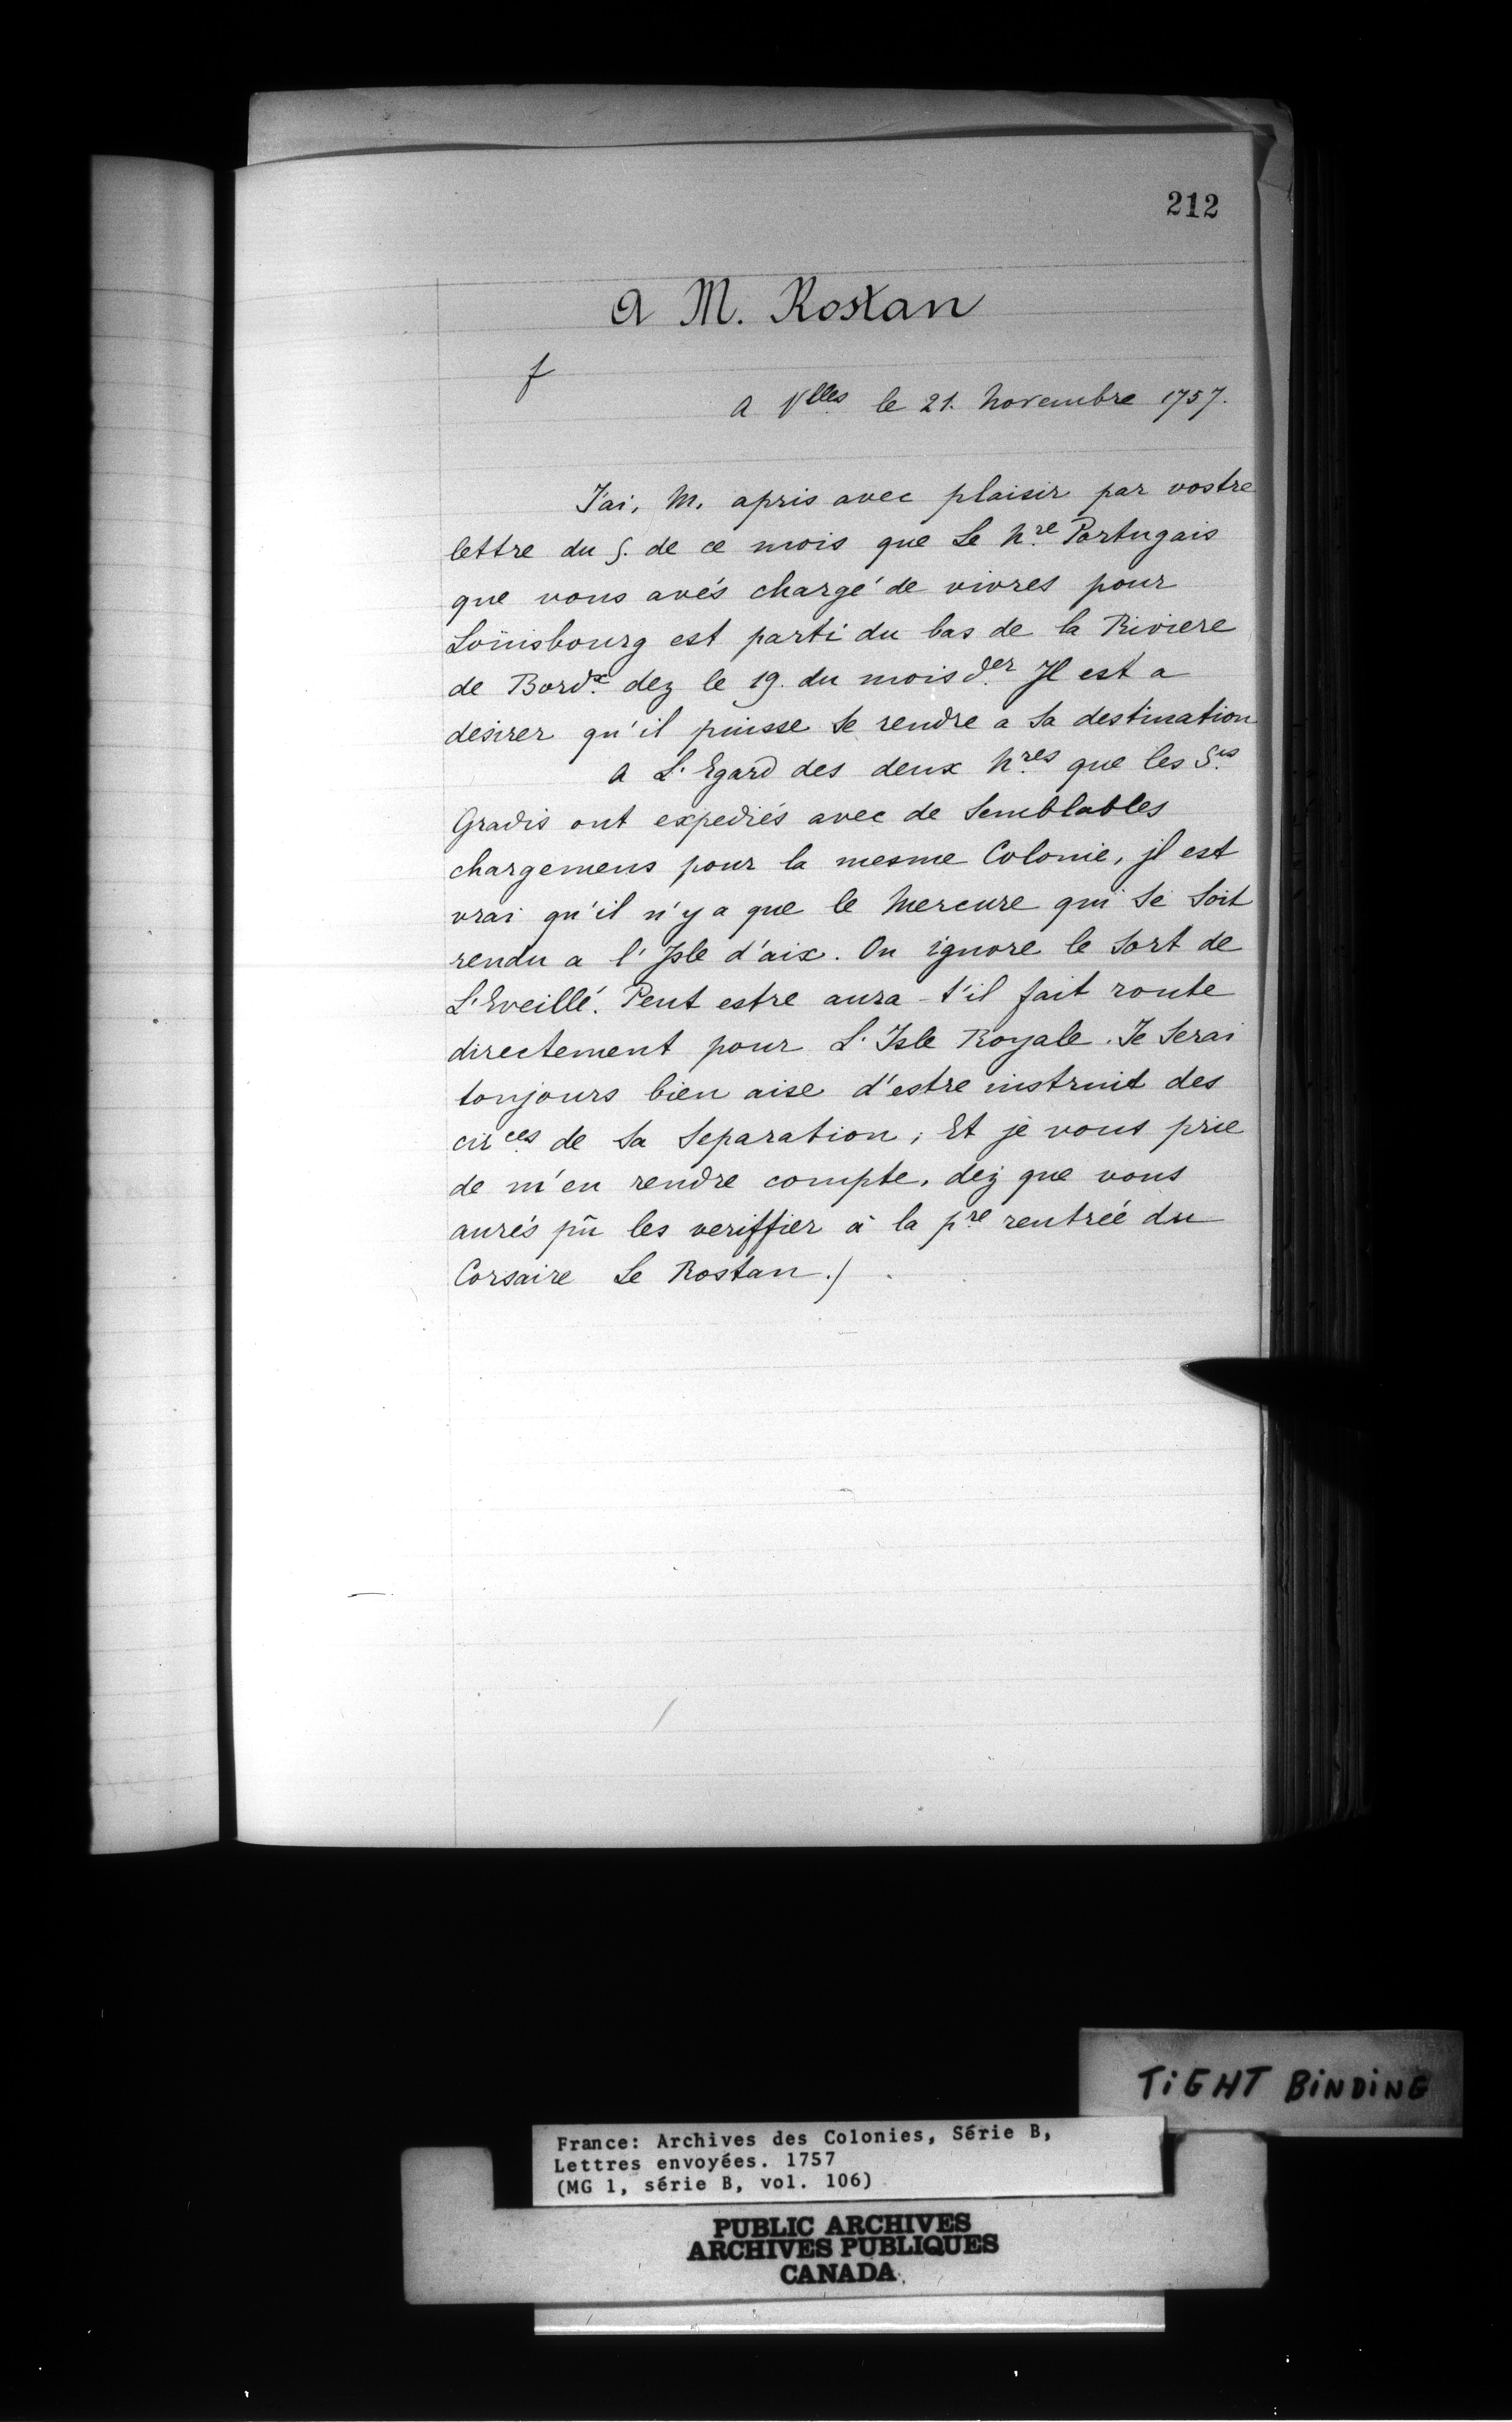 212
A M. Rostan
f
A Vlles le 21. Novembre 1757.
J'ai, M. apris avec plaisir par vostre
lettre du 5. de ce mois que Le N.re Portugais
que vous avés chargé de vivres pour
Loüisbourg est parti du bas de la Riviere
de Bord.x dez le 19. du mois d.er Jl est a
desirer qu'il puisse se rendre a sa destination
A L'Egard des deux N.res que les S.rs
Gradis ont expediés avec de semblables
chargemens pour la mesme Colonie, jl est
vrai qu'il n'y a que le Mercure qui se soit
rendu a l'Isle d'aix. On ignore le sort de
L'Eveillé. Peut estre aura-t'il fait route
directement pour L'Isle Royale. Je serai
toujours bien aise d'estre instruit des
cir.ces de sa separation; Et je vous prie
de m'en rendre compte, dez que vous
aurés pû les veriffier à la p.re rentrée du
Corsaire Le Rostan./.
TiGHT BiNDiNG
France: Archives des Colonies, Série B,
Lettres envoyées. 1757
(MG 1, série B, vol. 106)
PUBLIC ARCHIVES
ARCHIVES PUBLIQUES
CANADA